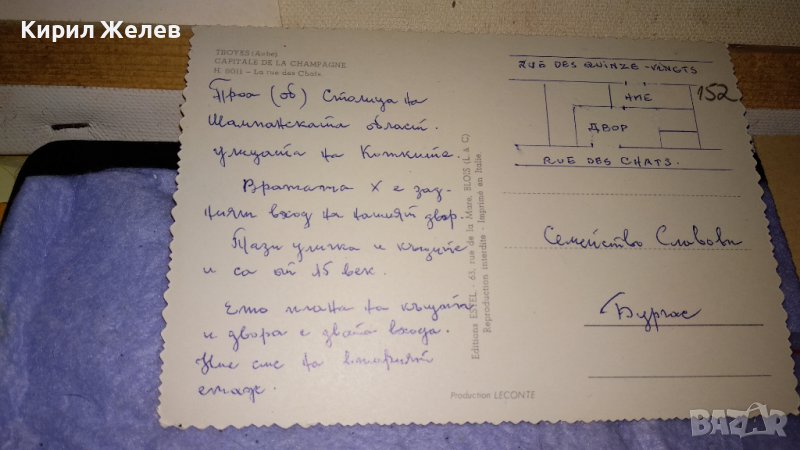 Кирил Желев
TROYES (Aube)
CAPITALE DE LA CHAMPAGNE
H. 8011 - La rue des Chats
Троа (об) Столица на
Шампанската област.
улицата на Котките.
Вратата X е зад-
ният вход на нашият двор.
Тази уличка и къщите
и са от 15 век.
Ето плана на къщата
и двора с двата входа.
Ние сме на вторият
етаж.
Editions ESTEL - 63, rue de la Mare, BLOIS (L & C)
Reproduction interdite - Imprimé en Italie
Production LECONTE
RUE DES QUINZE-VINGTS
152
НИЕ
ДВОР
RUE DES CHATS.
Семейство Славови
Бургас
BAZAR
bg